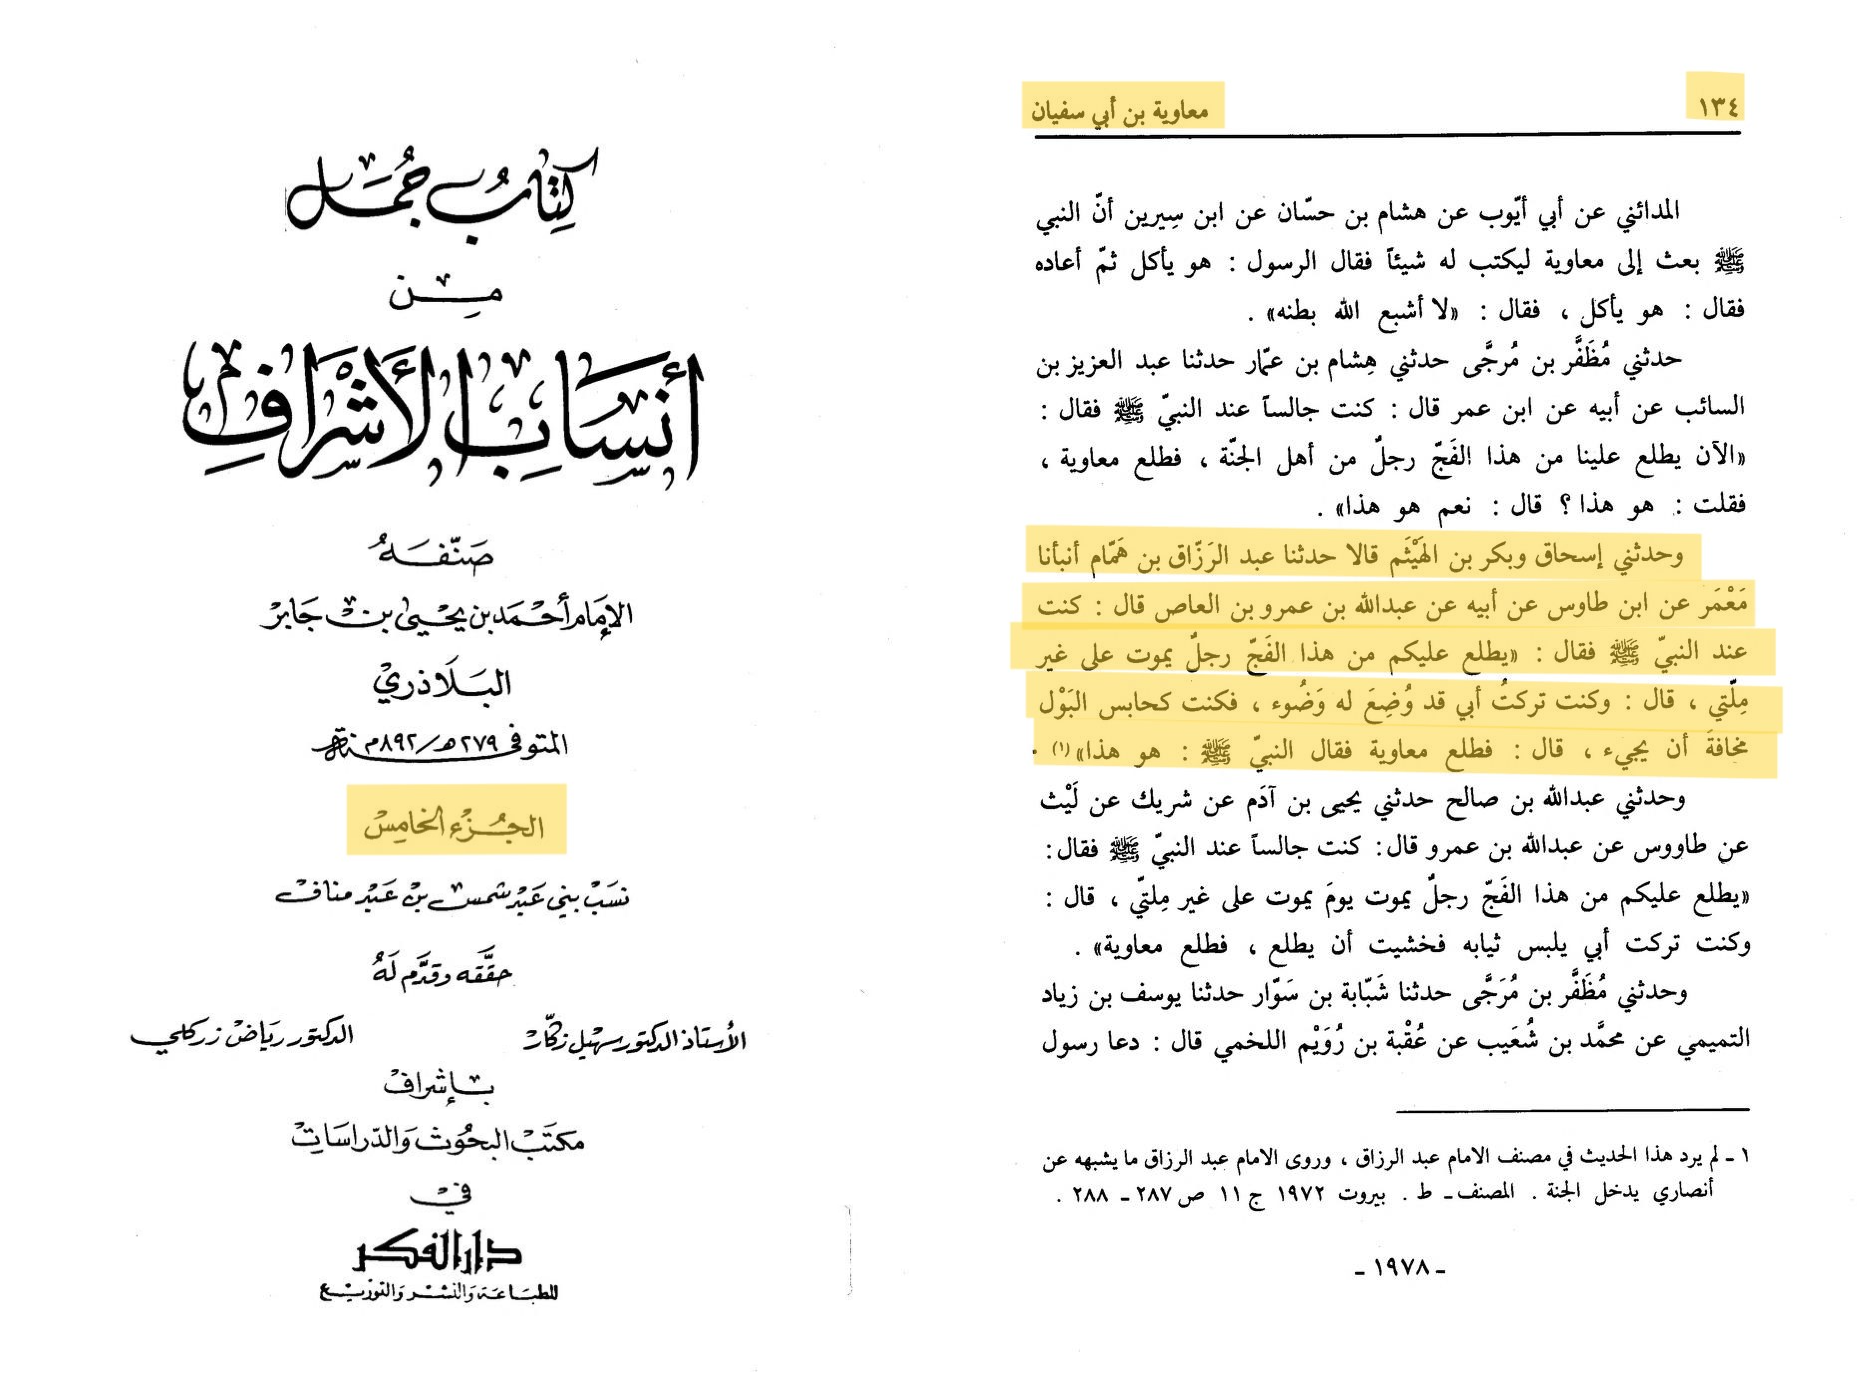 كتاب جُمَل
مِن
أنسَاب الأَشْرَافِ
صَنّفَهُ
الإمَام أحْمَد بن يحْيىٰ بنْ جَابرْ
البَلَاذري
المتوفى سنة ٢٧٩هـ/٨٩٢م
الجُزء الخامِسْ
نسَبْ بني عَبْد شمسْ بنْ عَبْد منافْ
حقَّقه وقدَّم لَهُ
الأستاذ الدكتور سهيل زكّار الدكتور رياضْ زركلي
بإشرافْ
مكتَبْ البحُوث وَالدّراسَاتْ
فيْ
دار الفكر
للطبَاعَة وَالنشْر وَالتَوزيْع
١٣٤ معاوية بن أبي سفيان
المدائني عن أبي أيّوب عن هشام بن حسّان عن ابن سِيرين أنّ النبي
ﷺ بعث إلى معاوية ليكتب له شيئاً فقال الرسول : هو يأكل ثمّ أعاده
فقال : هو يأكل ، فقال : «لا أشبع الله بطنه» .
حدثني مُظَفَّر بن مُرجَّى حدثني هِشام بن عمّار حدثنا عبد العزيز بن
السائب عن أبيه عن ابن عمر قال : كنت جالساً عند النبيّ ﷺ فقال :
«الآن يطلع علينا من هذا الفَجّ رجلٌ من أهل الجنّة ، فطلع معاوية ،
فقلت : هو هذا ؟ قال : نعم هو هذا» .
وحدثني إسحاق وبكر بن الهَيْثَم قالا حدثنا عبد الرَزّاق بن هَمّام أنبأنا
مَعْمَر عن ابن طاوس عن أبيه عن عبدالله بن عمرو بن العاص قال : كنت
عند النبيّ ﷺ فقال : «يطلع عليكم من هذا الفَجّ رجلٌ يموت على غير
مِلّتي ، قال : وكنت تركتُ أبي قد وُضِعَ له وَضُوء ، فكنت كحابس البَوْل
مخافةَ أن يجيء ، قال : فطلع معاوية فقال النبيّ ﷺ : هو هذا»(١) .
وحدثني عبدالله بن صالح حدثني يحيى بن آدَم عن شريك عن لَيْث
عن طاووس عن عبدالله بن عمرو قال: كنت جالساً عند النبيّ ﷺ فقال:
«يطلع عليكم من هذا الفَجّ رجلٌ يموت يومَ يموت على غير مِلتيّ ، قال :
وكنت تركت أبي يلبس ثيابه فخشيت أن يطلع ، فطلع معاوية» .
وحدثني مُظَفَّر بن مُرَجَّى حدثنا شَبّابة بن سَوّار حدثنا يوسف بن زياد
التميمي عن محمَّد بن شُعَيب عن عُقْبة بن رُوَيْم اللخمي قال : دعا رسول
١ ـ لم يرد هذا الحديث في مصنف الامام عبد الرزاق ، وروى الامام عبد الرزاق ما يشبهه عن
أنصاري يدخل الجنة . المصنف ـ ط . بيروت ١٩٧٢ ج ١١ ص ٢٨٧ ـ ٢٨٨ .
ـ ١٩٧٨ ـ